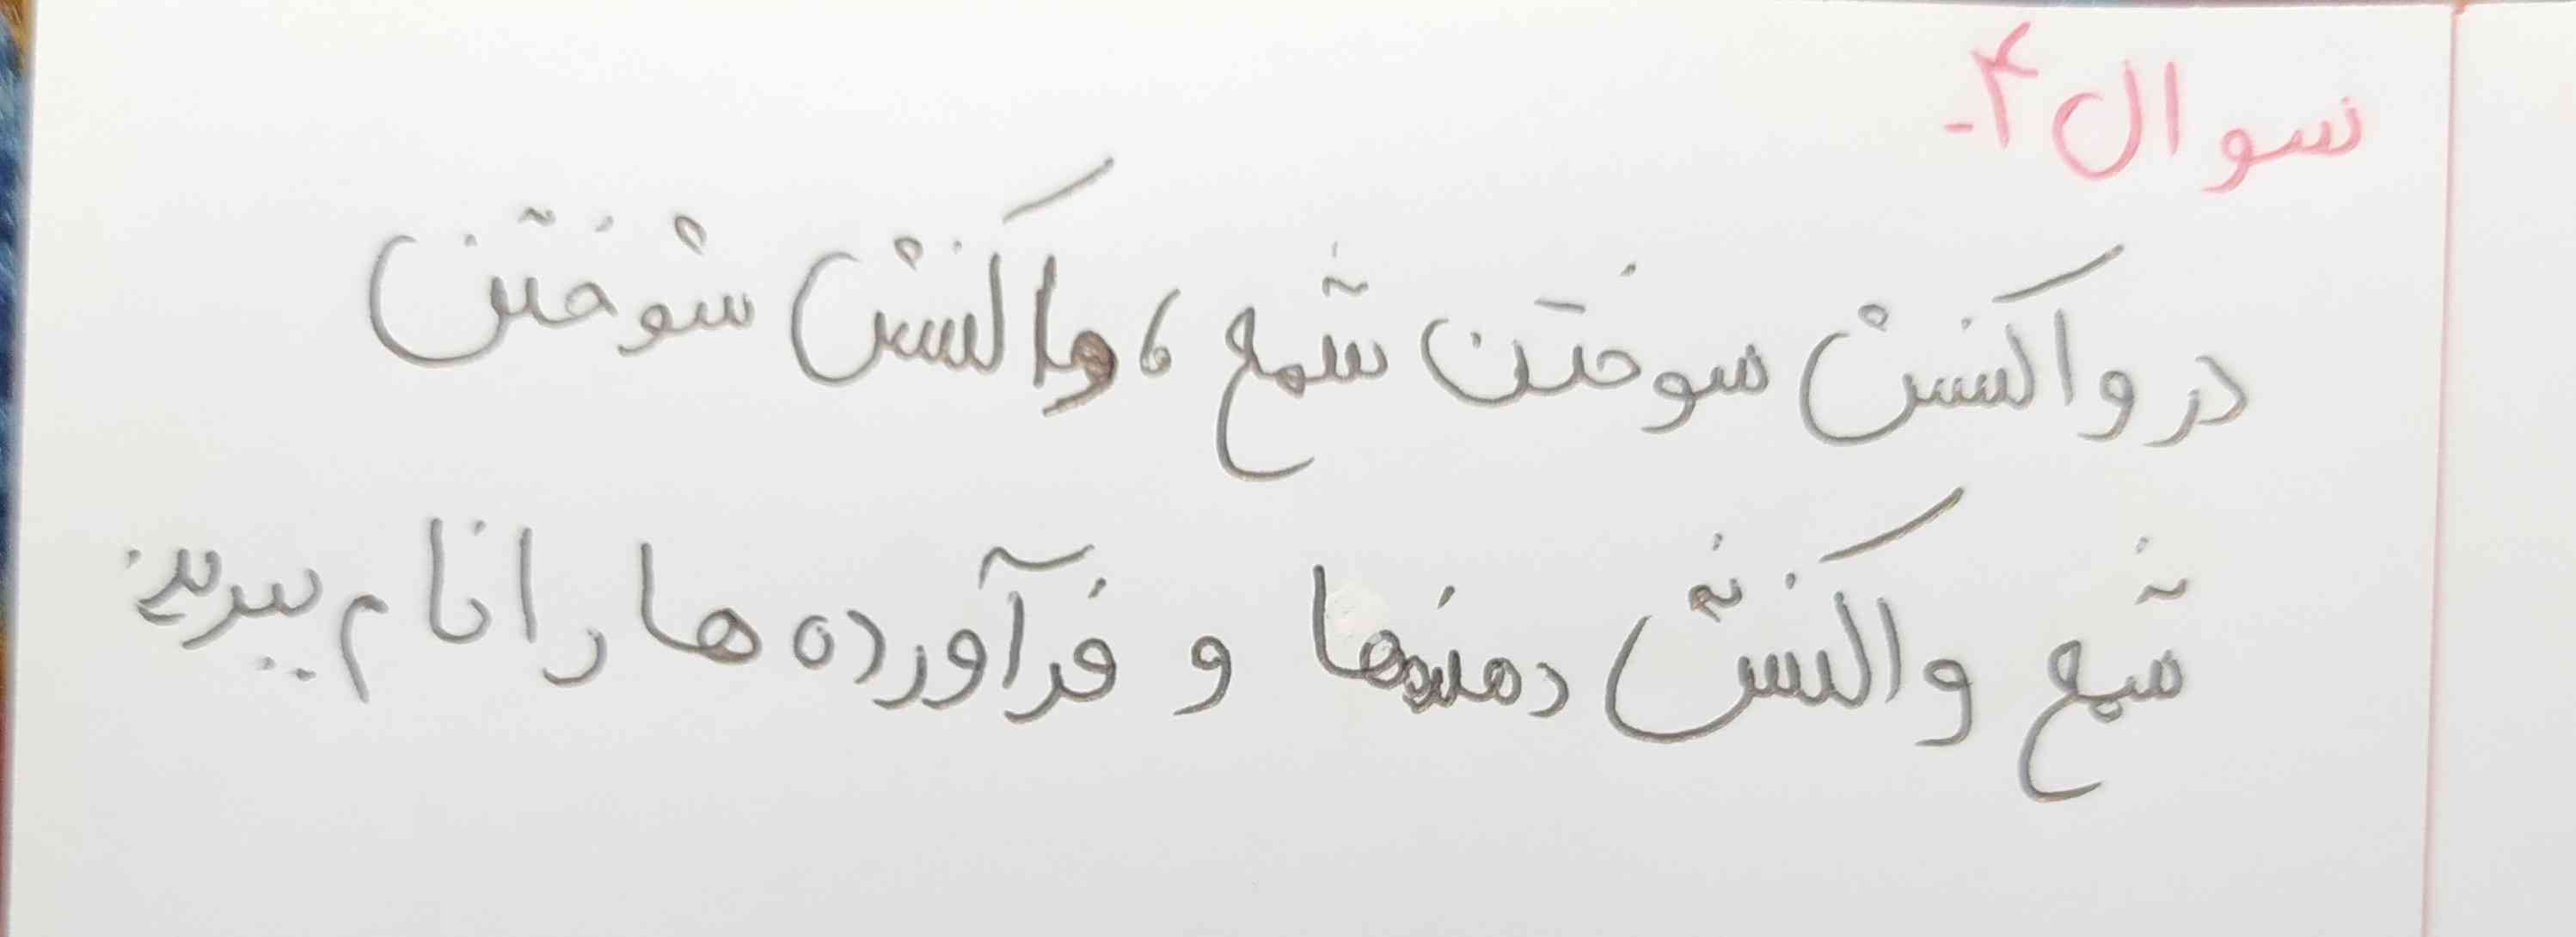 سوال ۴-
در واکنش سوختن شمع، واکنش سوختن
شمع واکنش دهندها و فرآورده ها را نام ببرید.